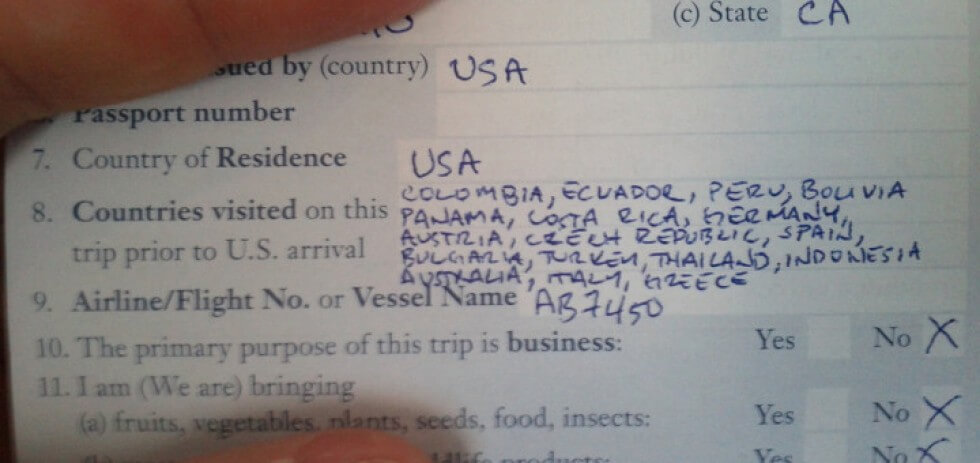 (c) State CA
sued by (country) USA
Passport number
7. Country of Residence USA
COLOMBIA, ECUADOR, PERU, BOLIVIA
8. Countries visited on this PANAMA, COSTA RICA, GERMANY,
trip prior to U.S. arrival AUSTRIA, CZECH REPUBLIC, SPAIN,
BULGARIA, TURKEY, THAILAND, INDONESIA
AUSTRALIA, ITALY, GREECE
9. Airline/Flight No. or Vessel Name AB7450
10. The primary purpose of this trip is business: Yes No X
11. I am (We are) bringing
(a) fruits, vegetables, plants, seeds, food, insects: Yes No X
products: Yes No X